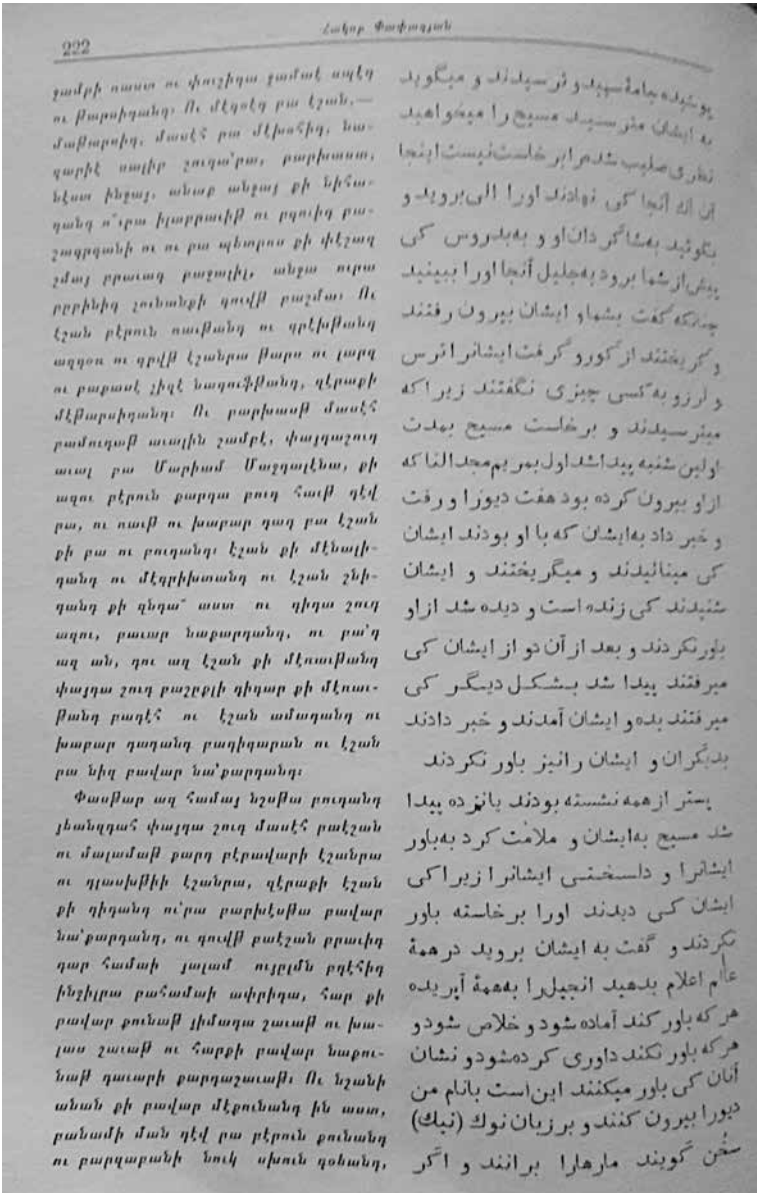 222
Հակոբ Փափազյան
ջամրի ռասա ու փուշիդա ջամաէ սպէդ
ու թարսիդանդ։ Ու մէգոէդ բա էշան,—
մաթարսիդ, մասէհ րա մէխոհիդ, նա-
զարիէ սալիբ շուդա՛րա, բարխաստ,
նէստ ինջայ, անաք անջայ քի նիհա-
դանդ ո՛ւրա իլաբրաւիթ ու բգուիդ բա-
շագրդանի ու ու բա պետրոս քի փէշազ
շմայ բրաւադ բաջալիլ, անջա ուրա
բըբինիդ չունանքի գուվթ բաշմա։ Ու
էշան բէրուն ռաւթանդ ու գրէխթանդ
ազգօռ ու գրվթ էշանրա թարս ու լարզ
ու բաքասէ չիզէ նագուֆթանդ, զէրաքի
մէթարսիդանդ։ Ու բարխասթ մասէհ
բամուդաթ աւալին շամբէ, փայդաշուդ
աւալ բա Մարիամ Մաջդալէնա, քի
ազու բէրուն քարդա բուդ հաւթ դէվ
րա, ու ռաւթ ու խաբար դադ բա էշան
քի բա ու բուդանդ։ Էշան քի մէնալի-
դանդ ու մէգրիխտանդ ու էշան շնի-
դանդ քի զնդա՜ աստ ու դիդա շուդ
ազու, բաւար նաքարդանդ, ու բա՛դ
ազ ան, դու ազ էշան քի մէռաւթանդ
փայդա շուդ բաշըքլի դիգար քի մէռաւ-
թանդ բադէհ ու էշան ամադանդ ու
խաբար դադանդ բադիգարան ու էշան
րա նիզ բավար նա՛քարդանդ։
Փասթար ազ համայ նշսթա բուդանդ
յեանզդահ փայդա շուդ մասէհ բաէշան
ու մալամաթ քարդ բէբավարի էշանրա
ու դլասխթիի էշանրա, զէրաքի էշան
քի դիդանդ ու՛րա բարխէսթա բավար
նա՛քարդանդ, ու գուվթ բաէշան բրաւիդ
դար համաի յալամ ույըլմն բդէհիդ
ինջիլրա բահամաի աֆրիդա, հար քի
բավար քունաթ յիմադա շաւաթ ու խա-
լաս շաւաթ ու հարքի բավար նաքու-
նաթ դաւարի քարդաշաւաթ։ Ու նշանի
անան քի բավար մէքունանդ ին աստ,
բանամի ման դէվ րա բէրուն քունանդ
ու բարզաբանի նուկ սխուն գօեանդ,
پوشیده جامهٔ سپید و ترسیدند و میگوید
به ایشان مترسید مسیح را میخواهید
نظری صلیب شده را برخاست نیست اینجا
آن اك آنجا كی نهادند اورا الی بروید و
بگوئید به‌شاگردان او و به‌پدروس كی
پیش از شما برود به‌جلیل آنجا اورا ببینید
چنانکه گفت بشما و ایشان بیرون رفتند
و گریختند از گورو گرفت ایشانرا ترس
و لرزو به‌کسی چیزی نگفتند زیرا که
میترسیدند و برخاست مسیح بمدت
اولین شنبه پیدا شد اول بمریم مجدالنا که
ازاو بیرون کرده بود هفت دیورا و رفت
و خبر داد به‌ایشان که با او بودند ایشان
كی مینالیدند و میگریختند و ایشان
شنیدند كی زنده است و دیده شد ازاو
باورنکردند و بعد از آن دو از ایشان كی
میرفتند پیدا شد بشکل دیگر كی
میرفتند بده و ایشان آمدند و خبر دادند
بدیگران و ایشان را نیز باور نکردند
پستر از همه نشسته بودند یانزده پیدا
شد مسیح به‌ایشان و ملامت کرد به‌باور
ایشانرا و دلسختی ایشانرا زیرا كی
ایشان كی دیدند اورا برخاسته باور
نکردند و گفت به ایشان بروید در همهٔ
عالم اعلام بدهید انجیل‌را به‌همهٔ آپریده
هر که باور کند آماده شود و خلاص شود و
هرکه باور نکند داوری کرده‌شود و نشان
آنان كی باور میکنند این است بانام من
دیورا بیرون کنند و بر زبان نوك (نیك)
سخن گویند مارهارا برانند و اگر